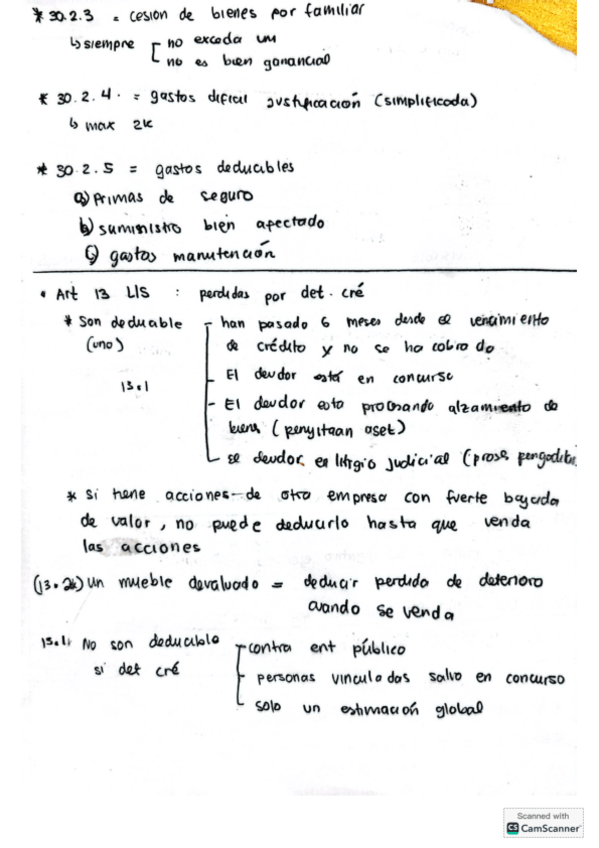 * 30.2.3 = cesion de bienes por familiar
↳ siempre [ no exceda vm
no es bien ganancial
* 30.2.4. = gastos dificil justificación (simplificada)
↳ max 2k
* 30.2.5 = gastos deducibles
a) Primas de seguro
b) suministro bien afectado
c) gastos manutención
• Art 13 LIS : perdidas por det. cré
* Son deducible
(uno)
13.1
- han pasado 6 meses desde el vencimiento
de crédito y no se ha cobrado
- El deudor está en concurso
- El deudor esta procesando alzamiento de
bienes (penyitaan aset)
- se deudor en litigio judicial (proses
* Si tiene acciones de otro empresa con fuerte bajada
de valor, no puede deducirlo hasta que venda
las acciones
(13.2*) un mueble devaluado = deducir perdida de deterioro
cuando se venda
13.1: No son deducible
si det cré
- contra ent público
- personas vinculadas salvo en concurso
- solo un estimación global
Scanned with
CS CamScanner